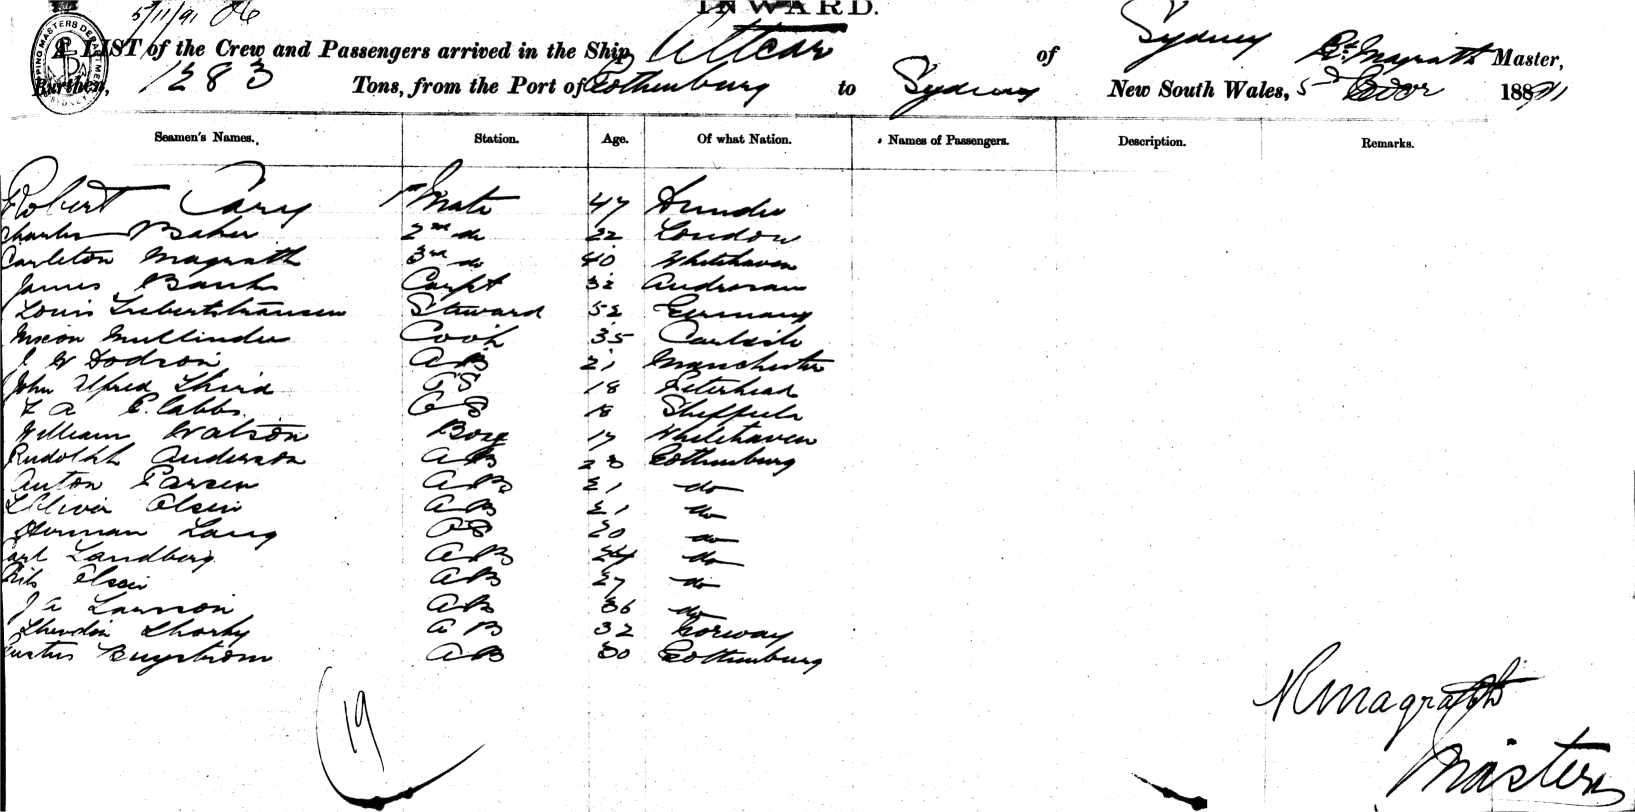 5/11/91
INWARD.
A LIST of the Crew and Passengers arrived in the Ship Altcar of Sydney Rt. Magrath Master,
Burthen, 1283 Tons, from the Port of Gothenburg to Sydney New South Wales, 5th 1891
Seamen's Names. Station. Age. Of what Nation. Names of Passengers. Description. Remarks.
Robert Cary 1st Mate 47 Dundee
Charles Baker 2nd do 22 London
Carleton Magrath 3rd do 40 Whitehaven
James Banks Carpt 32
Louis Steward 52 Germany
Nixon Mullinder Cook 35 Carlisle
J W Dodson AB 21 Manchester
John Alfred Third OS 18 Peterhead
F A E. Cabbs OS 18 Sheffield
William Watson Boy 17 Whitehaven
Rudolph Anderson AB 23 Gothenburg
Anton Larsen AB 21 do
Olsen AB 21 do
Herman Lang OS 20 do
Carl Landberg AB 24 do
Olsen AB 27 do
J A Larsson AB 36 do
AB 32 Norway
AB 30 Gothenburg
19
R Magrath
Master